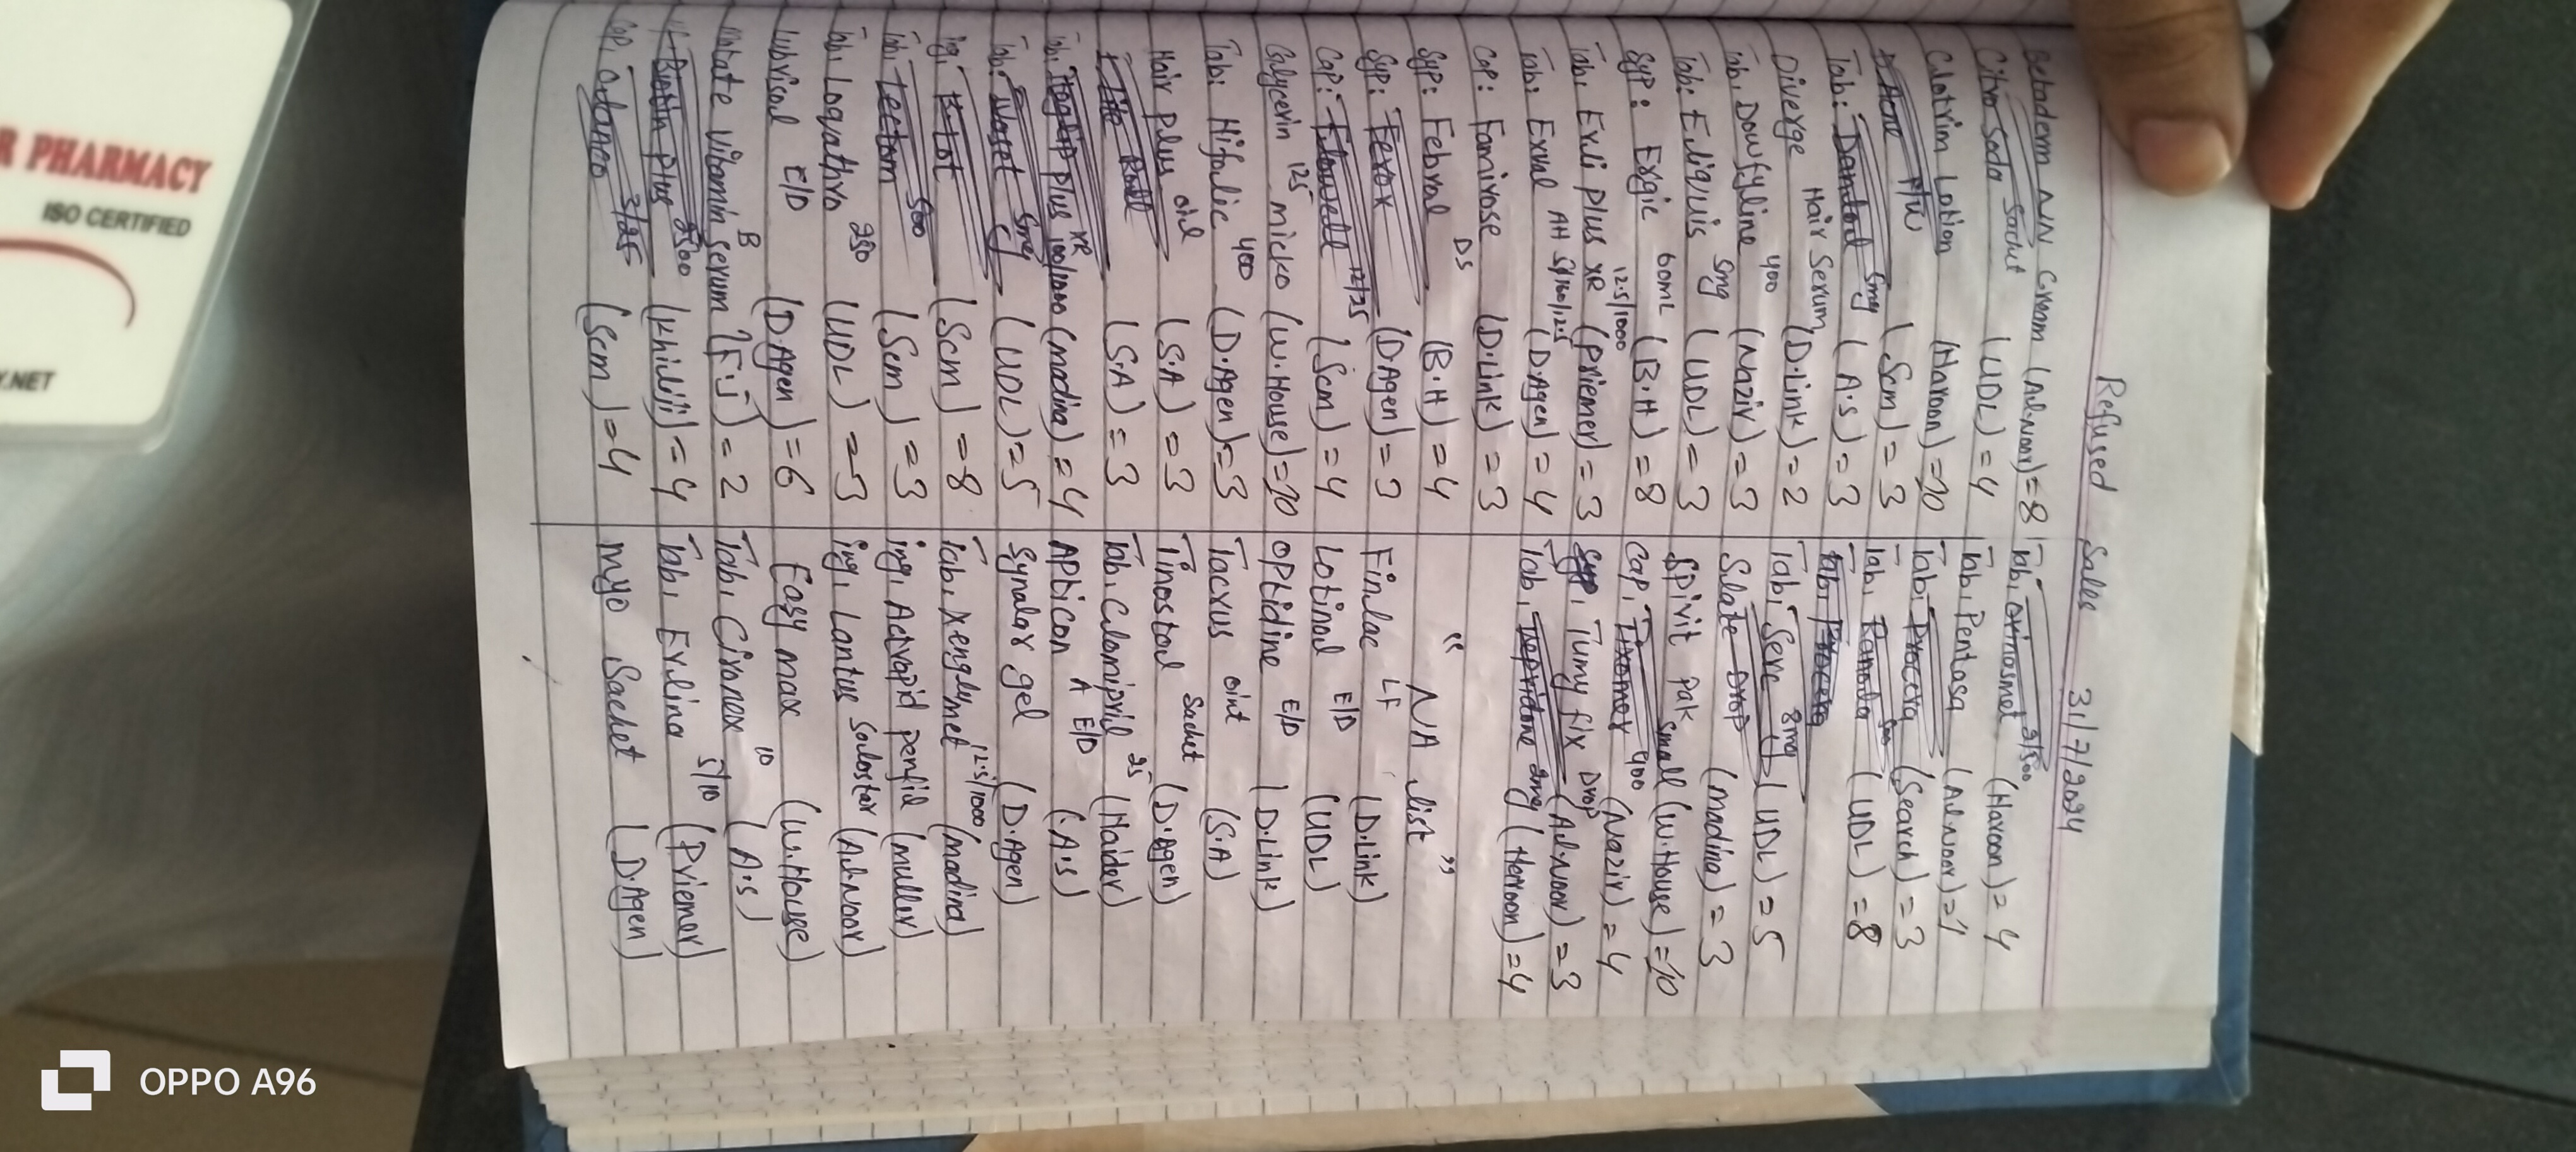 Refused Sales 31/7/2024
Betaderm NN Cream (Al.Noor) = 8
Citro Soda Sachet (UDL) = 4
Clotrim Lotion (Haroon) = 10
Acne F/W (Scm) = 3
Tab: 5mg (A.S) = 3
Diverge Hair Serum (D.Link) = 2
Tab, Dowfyline 400 (Nazir) = 3
Tab: Eliquis 5mg (UDL) = 3
Syp: Ergic 60ML (B.H) = 8
Tab, Exli plus XR 12.5/1000 (Priemer) = 3
Tab: Exval AH 5/160/12.5 (D.Agen) = 4
Cap: Famirose (D.Link) = 3
Syp: Febral DS (B.H) = 4
Syp: Ferox (D.Agen) = 3
Cap: 12/25 (Scm) = 4
Galycerin 125 micko (W.House) = 10
Tab: Hifolic 400 (D.Agen) = 3
Hair plus oil (S.A) = 3
(S.A) = 3
Tab, plus XR 100/1000 (madina) = 4
Tab: 5mg (UDL) = 5
inj, K-tot (Scm) = 8
Tab: Lecton 500 (Scm) = 3
Tab, Loqathro 250 (UDL) = 3
Lubrisol E/D (D.Agen) = 6
Vitamin B Serum (F.J) = 2
Biotin plus 2500 (Khiljii) = 4
Cap, 3/25 (Scm) = 4
Tab, 3/500 (Haroon) = 4
Tab, Pentosa (Al.Noor) = 1
Tab, Procera (Search) = 3
Tab, 500 (UDL) = 8
Tab, Procera
Tab, Sere 8mg (UDL) = 5
Silate Drop (madina) = 3
Spivit Pak Small (W.House) = 10
Cap, 400 (Nazir) = 4
Syp, Tumy fix Drop (Al.Noor) = 3
Tab, 2mg (Haroon) = 4
“ NA list ”
Finlac LF (D.Link)
Lotinol E/D (UDL)
Optidine E/D (D.Link)
Tacrus oint (S.A)
Tinostal Sachet (D.Agen)
Tab, Clomipril 25 (Haider)
APticon A E/D (A.S)
Synalar gel (D.Agen)
Tab, Xenglymet 12.5/1000 (madina)
inj, Actrapid penfil (muller)
inj, Lantus Solostar (Al.Noor)
Easy max (W.House)
Tab, Cironex 10 (A.S)
Tab, Exlina 5/10 (Priemer)
myo Sachet (D.Agen)
R PHARMACY
ISO CERTIFIED
Y.NET
OPPO A96